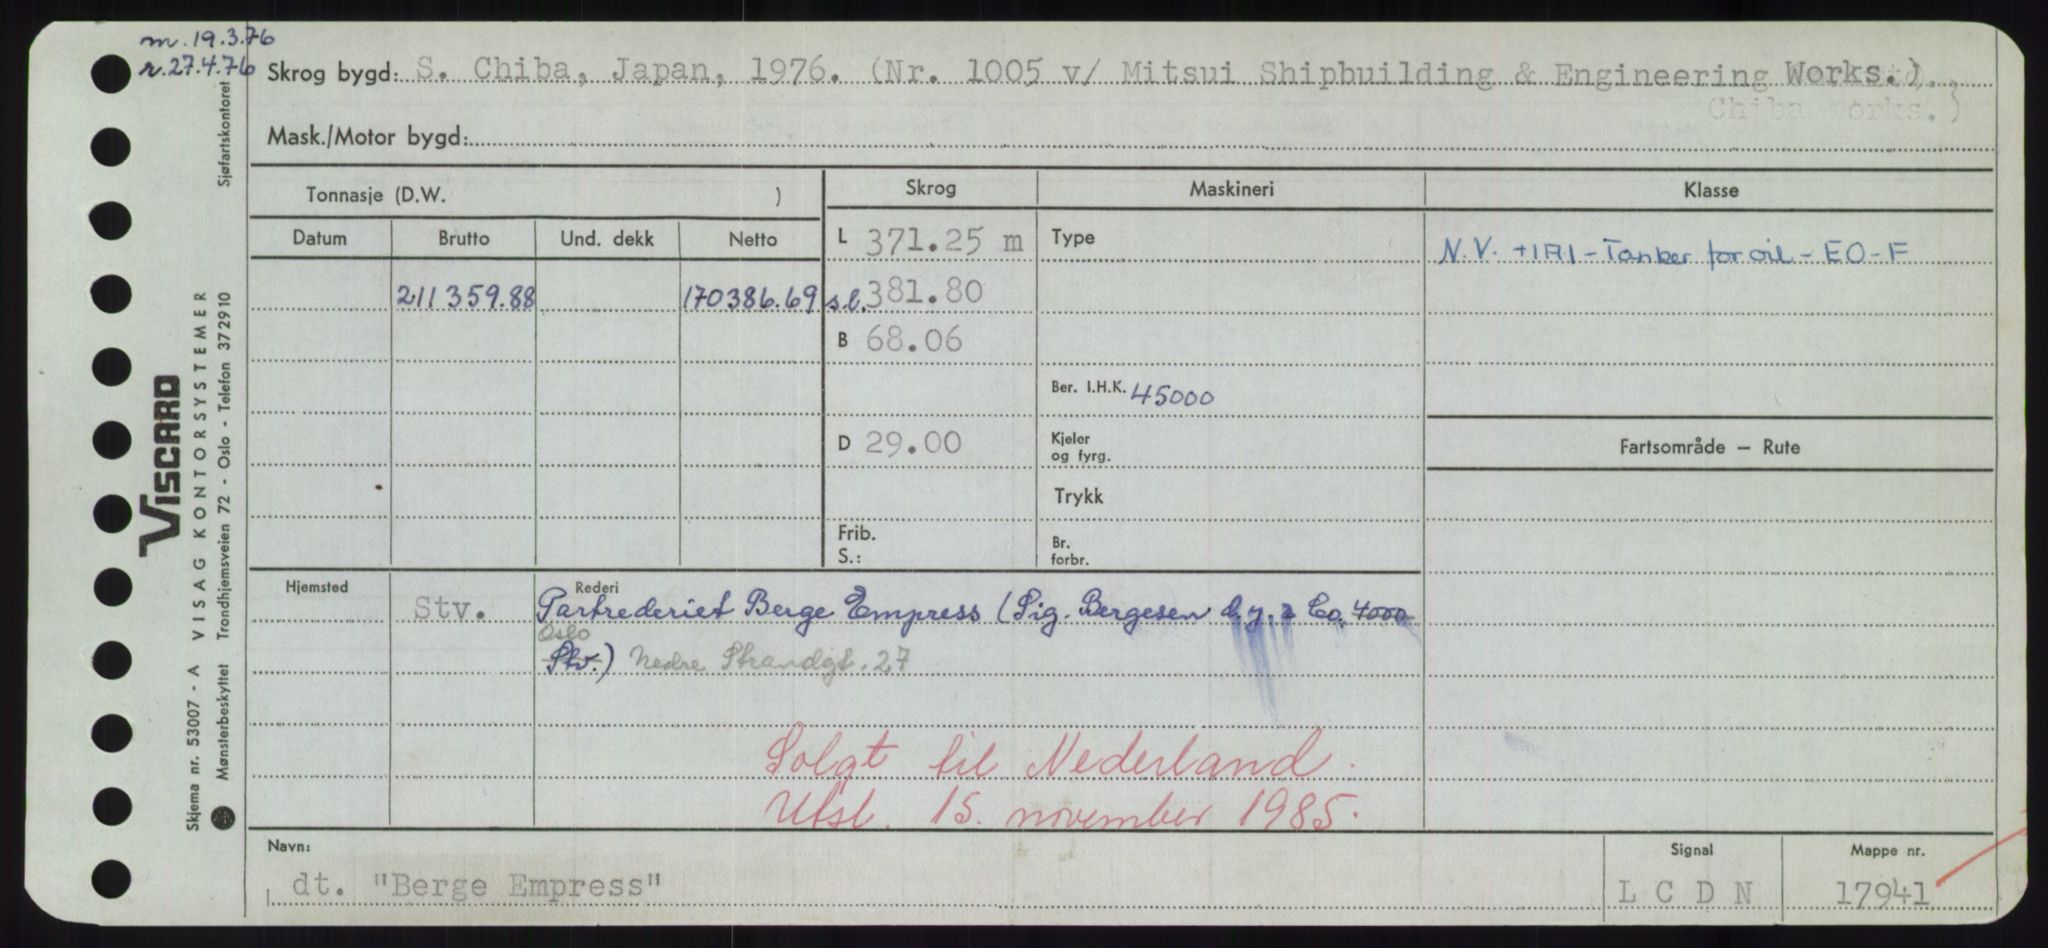 m. 19.3.76
r. 27.4.76
Skrog bygd: S. Chiba, Japan, 1976. (Nr. 1005 v/ Mitsui Shipbuilding & Engineering Works.)
Chiba Works.)
Mask./Motor bygd:
Sjøfartskontoret
Tonnasje (D.W. )
Skrog
Maskineri
Klasse
Datum
Brutto
Und. dekk
Netto
L 371.25 m
Type
N.V. +1A1 - Tanker for oil - EO - F
211359.88
170386.69
s.l. 381.80
B 68.06
Ber. I.H.K. 45000
D 29.00
Kjeler
og fyrg.
Fartsområde — Rute
Trykk
Frib.
S.:
Br.
forbr.
Hjemsted
Stv.
Rederi
Partrederiet Berge Empress (Sig. Bergesen d.y. & Co. 4000
Oslo
Stv.) Nedre Strandgt. 27
Solgt til Nederland.
Utsl. 15. november 1985.
Navn:
dt. "Berge Empress"
Signal
LCDN
Mappe nr.
17941
VISCARD
VISAG KONTORSYSTEMER
Trondhjemsveien 72 - Oslo - Telefon 372910
Skjema nr. 53007 - A
Mønsterbeskyttet